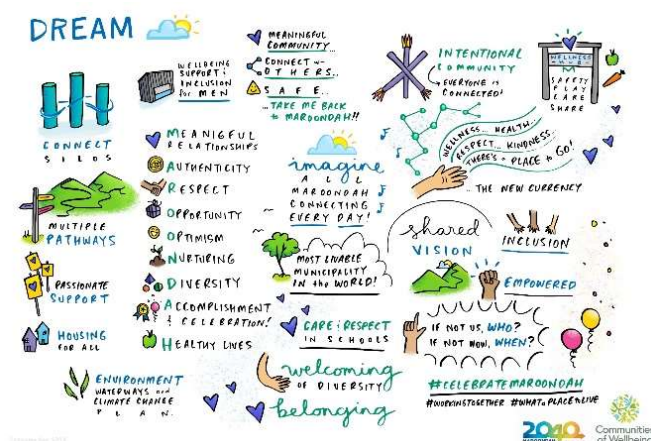 DREAM
CONNECT
SILOS
MULTIPLE
PATHWAYS
PASSIONATE
SUPPORT
HOUSING
FOR ALL
ENVIRONMENT
WATERWAYS and
CLIMATE CHANGE
PLAN.
WELLBEING
SUPPORT &
INCLUSION
for MEN
MEANIGFUL
RELATIONSHIPS
AUTHENTICITY
RESPECT
OPPORTUNITY
OPTIMISM
NURTURING
DIVERSITY
ACCOMPLISHMENT
& CELEBRATION!
HEALTHY LIVES
MEANINGFUL
COMMUNITY...
CONNECT w-
OTHERS...
SAFE...
...TAKE ME BACK
to MAROONDAH!!
imagine
ALL
MAROONDAH
CONNECTING
EVERY DAY!
MOST LIVABLE
MUNICIPALITY
IN the WORLD!
CARE & RESPECT
IN SCHOOLS
welcoming
OF DIVERSITY
belonging
INTENTIONAL
COMMUNITY
EVERYONE is
CONNECTED!
WELLNESS
HUB
M
SAFETY
PLAY
CARE
SHARE
WELLNESS... HEALTH...
RESPECT... KINDNESS.
THERE'S a PLACE to GO!
...THE NEW CURRENCY
shared
VISION
INCLUSION
EMPOWERED
IF NOT US, WHO?
IF NOT NOW, WHEN?
#CELEBRATEMAROONDAH
#WORKINGTOGETHER #WHATaPLACEtoLIVE
2040
MAROONDAH
Communities
of Wellbeing